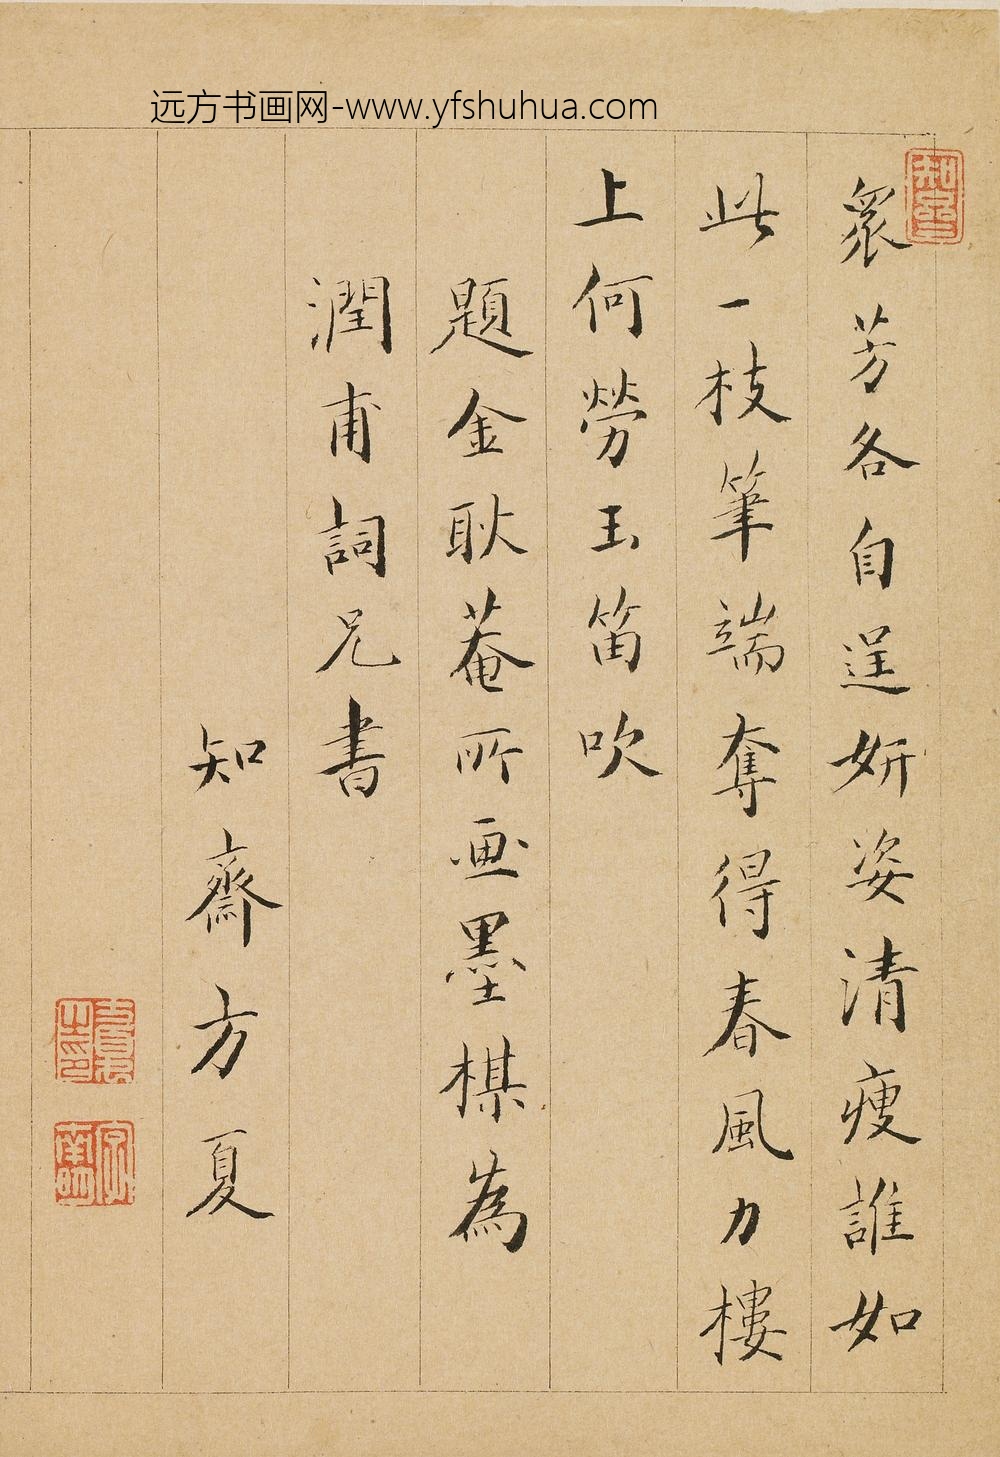 远方书画网-www.yfshuhua.com
眾芳各自逞妍姿清瘦誰如
此一枝筆端奪得春風力樓
上何勞玉笛吹
題金耿菴所画墨楳為
潤甫詞兄書
知齋方夏